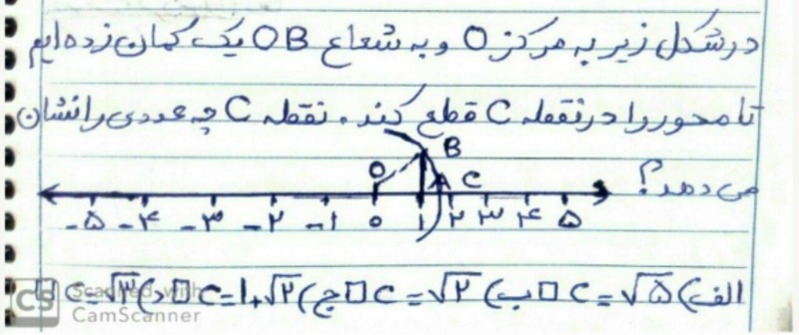 در شکل زیر به مرکز O و به شعاع OB یک کمان زده ایم
تا محور را در نقطه C قطع کند. نقطه C چه عددی را نشان
می دهد؟
O B A C
-۵ -۴ -۳ -۲ -۱ ۰ ۱ ۲ ۳ ۴ ۵
الف) C=√۵ □ ب) C=√۲ □ ج) C=۱+√۲ □ د) C=√۳ □
CS Scanned with
CamScanner